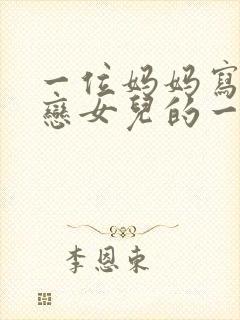 一位妈妈寫
戀女兒的一
李恩東